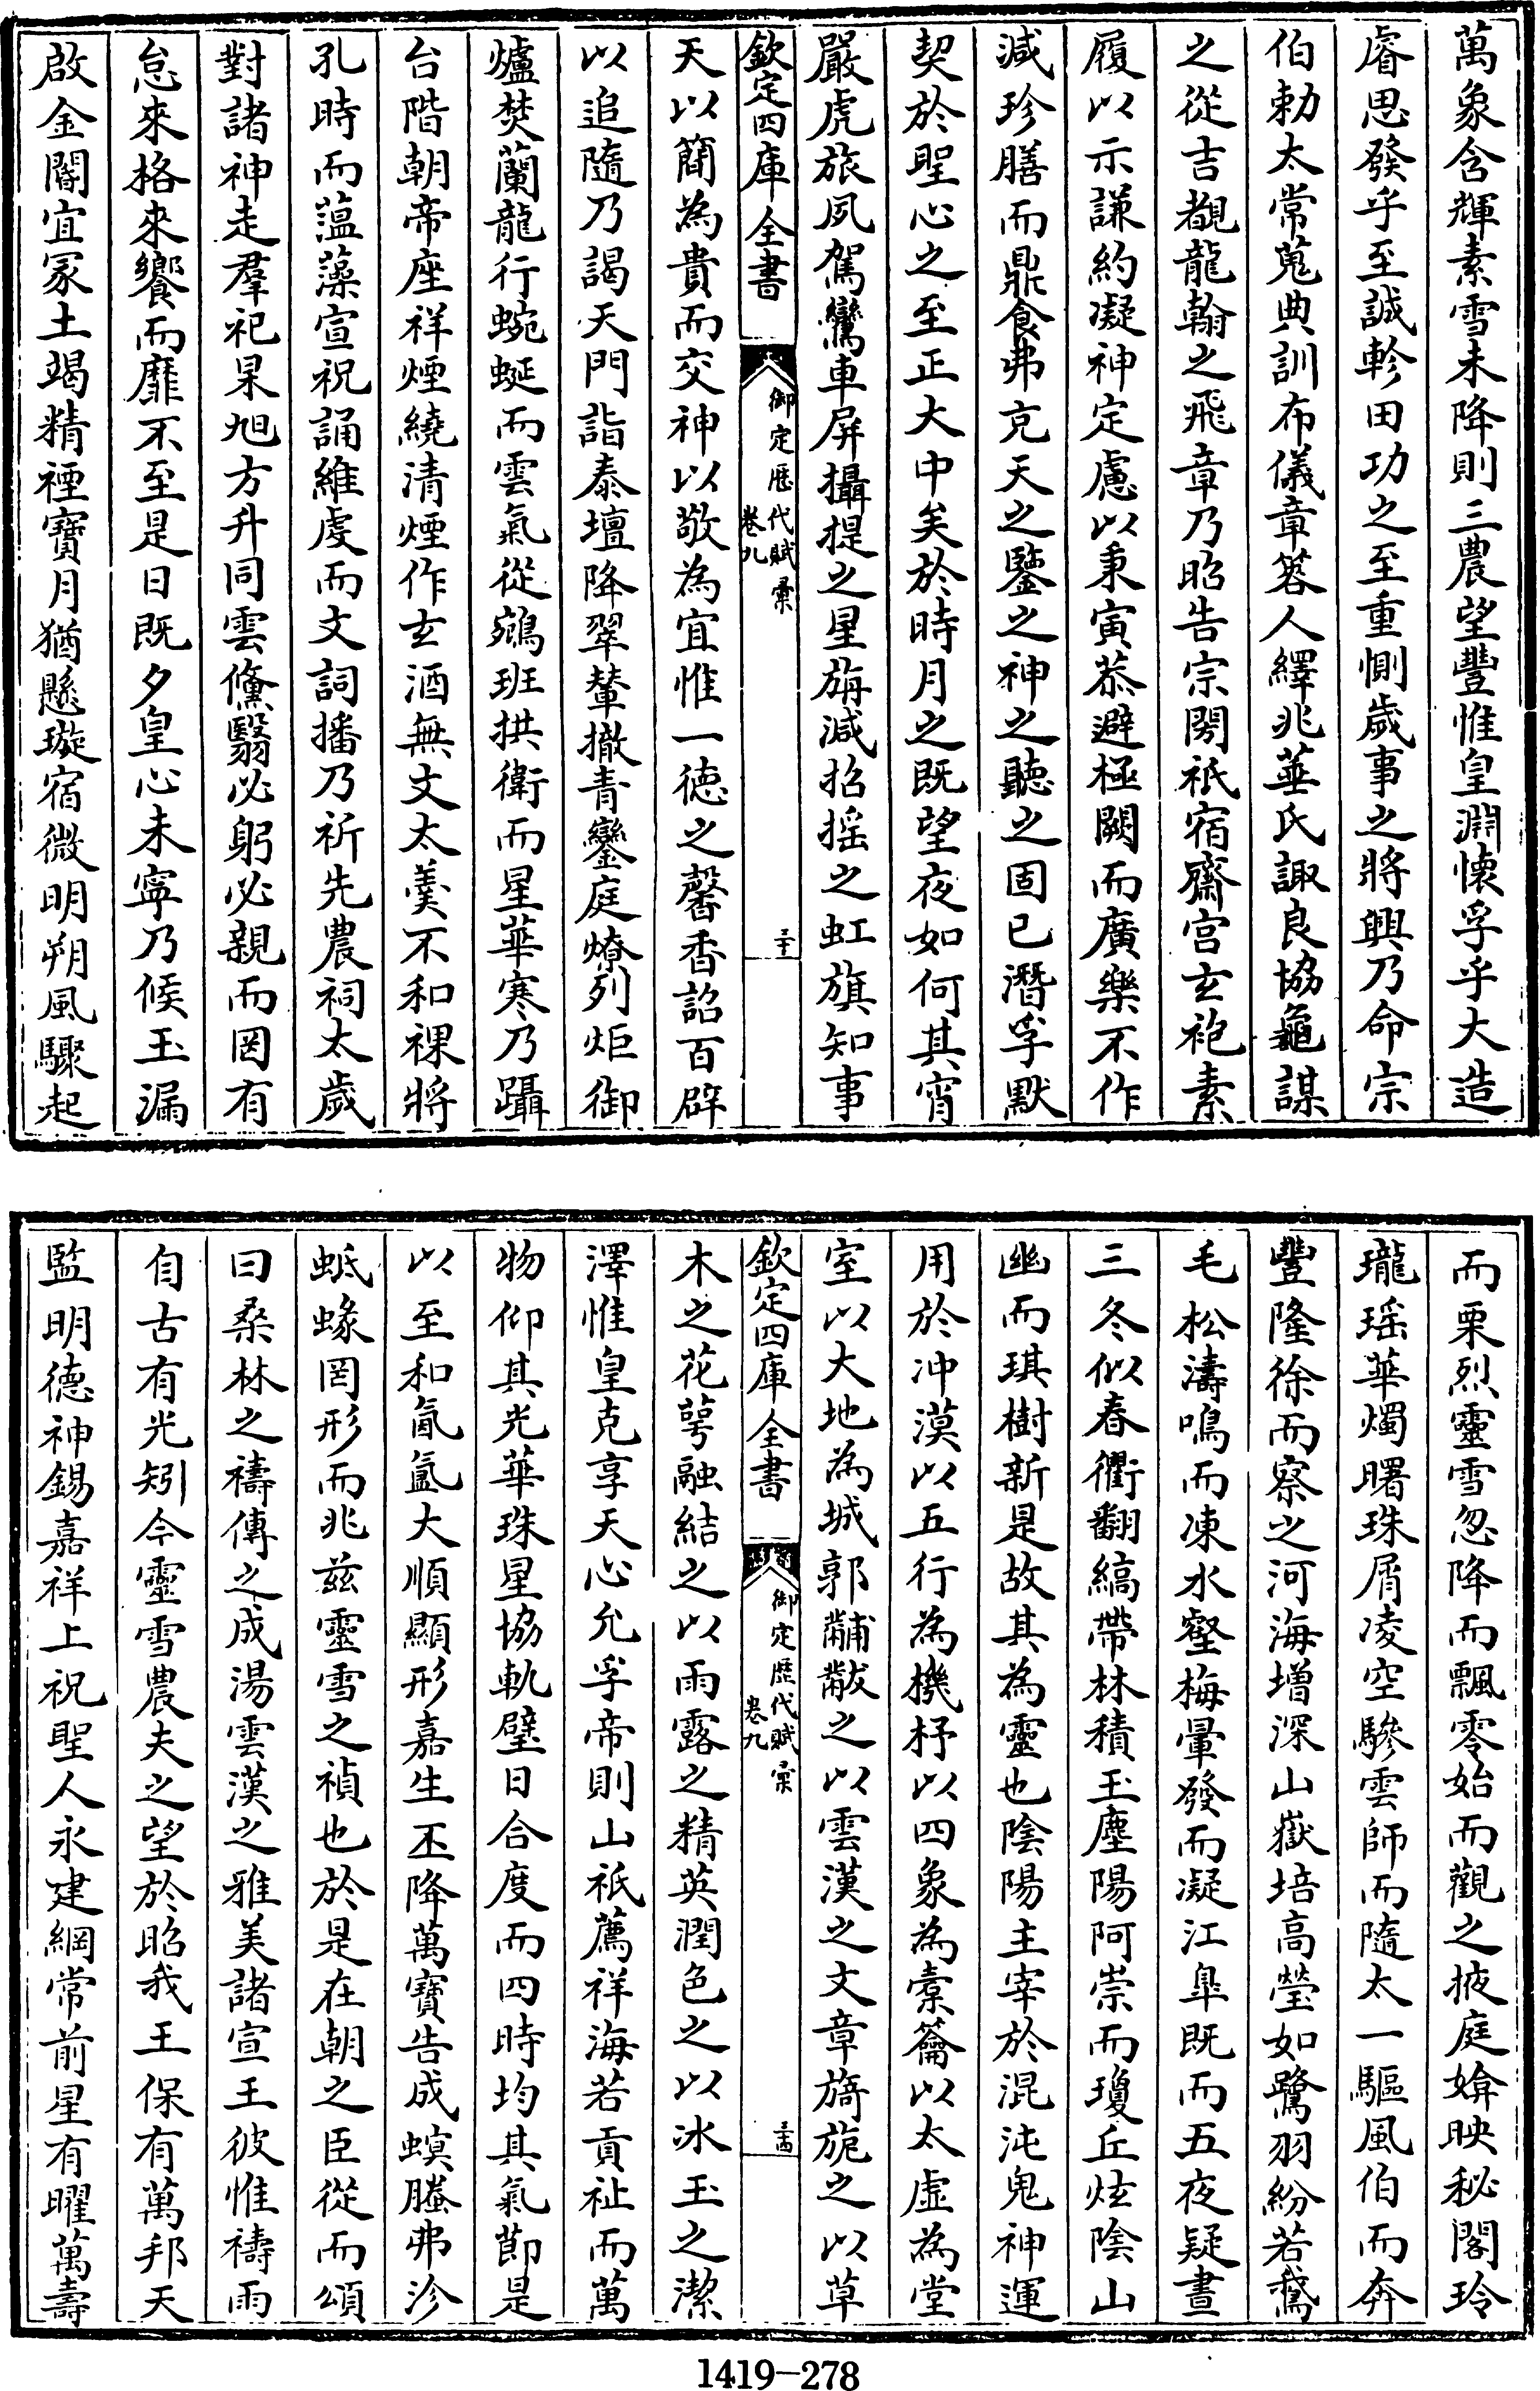 萬象含輝素雪未降則三農望豐惟皇淵懷孚乎大造
睿思發乎至誠軫田功之至重惻歲事之將興乃命宗
伯勅太常蒐典訓布儀章筮人繹兆菙氏諏良協龜謀
之從吉覩龍翰之飛章乃昭告宗祊祇宿齋宫玄袍素
履以示謙約凝神定慮以秉寅恭避極闕而廣樂不作
減珍膳而鼎食弗克天之鑒之神之聽之固已潛孚默
契於聖心之至正大中矣於時月之既望夜如何其宵
嚴虎旅夙駕鸞車屏攝提之星旃減招搖之虹旗知事
欽定四庫全書
御定歷代賦彙
卷九
天以簡為貴而交神以敬為宜惟一德之馨香詔百辟
以追隨乃謁天門詣泰壇降翠輦撤青鑾庭燎列炬御
爐焚蘭龍行蜿蜒而雲氣從鵷班拱衛而星華寒乃躡
台階朝帝座祥煙繞清煙作玄酒無文太羹不和祼將
孔時而薀藻宣祝誦維虔而文詞播乃祈先農祠太歲
對諸神走羣祀杲旭方升同雲儵翳必躬必親而罔有
怠來格來饗而靡不至是日既夕皇心未寧乃候玉漏
啟金闈宜冢土竭精禋寶月猶懸璇宿微明朔風驟起
而栗烈靈雪忽降而飄零始而觀之掖庭媕映秘閣玲
瓏瑶華燭曙珠屑凌空驂雲師而隨太一驅風伯而奔
豐隆徐而察之河海增深山嶽培高瑩如鷺羽紛若鵞
毛松濤鳴而凍水壑梅暈發而凝江臯既而五夜疑晝
三冬似春衢翻縞帶林積玉塵陽阿崇而瓊丘炫陰山
幽而琪樹新是故其為靈也陰陽主宰於混沌鬼神運
用於冲漠以五行為機杼以四象為橐籥以太虚為堂
室以大地為城郭黼黻之以雲漢之文章旖旎之以草
欽定四庫全書
御定歷代賦彙
卷九
木之花萼融結之以雨露之精英潤色之以冰玉之潔
澤惟皇克享天心允孚帝則山祇薦祥海若貢祉而萬
物仰其光華珠星協軌璧日合度而四時均其氣節是
以至和氤氲大順顯形嘉生丕降萬寶告成螟螣弗沴
蚳蝝罔形而兆兹靈雪之禎也於是在朝之臣從而頌
曰桑林之禱傳之成湯雲漢之雅美諸宣王彼惟禱雨
自古有光矧今靈雪農夫之望於昭我王保有萬邦天
監明德神錫嘉祥上祝聖人永建綱常前星有曜萬壽
1419-278